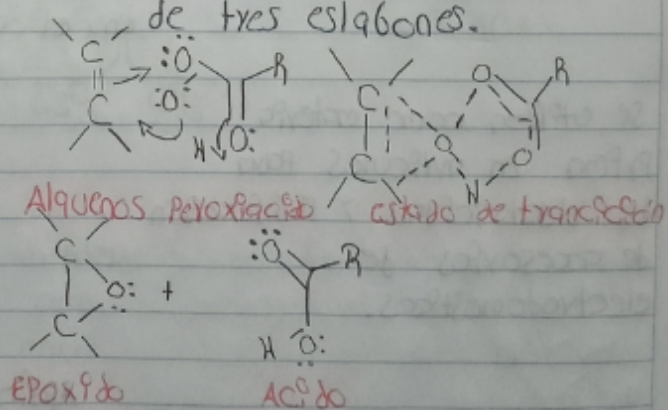 de tres eslabones.
C :Ö R C O R
:O: O
C H O: C H O
Alquenos Peroxiacido estado de trancicion
C :Ö R
O: +
C H O:
EPoxido Acido